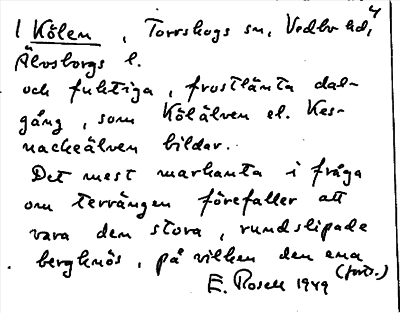 1 Kölen, Torrskogs sn, Vedbo hd, 4
Älvsborgs l.
och fuktiga, frostlänta dal-
gång, som Kölälven el. Kes-
nackeälven bildar.
Det mest markanta i fråga
om terrängen förefaller att
vara den stora, rundslipade
bergknös, på vilken den ena
(forts.)
E. Rosell 1949